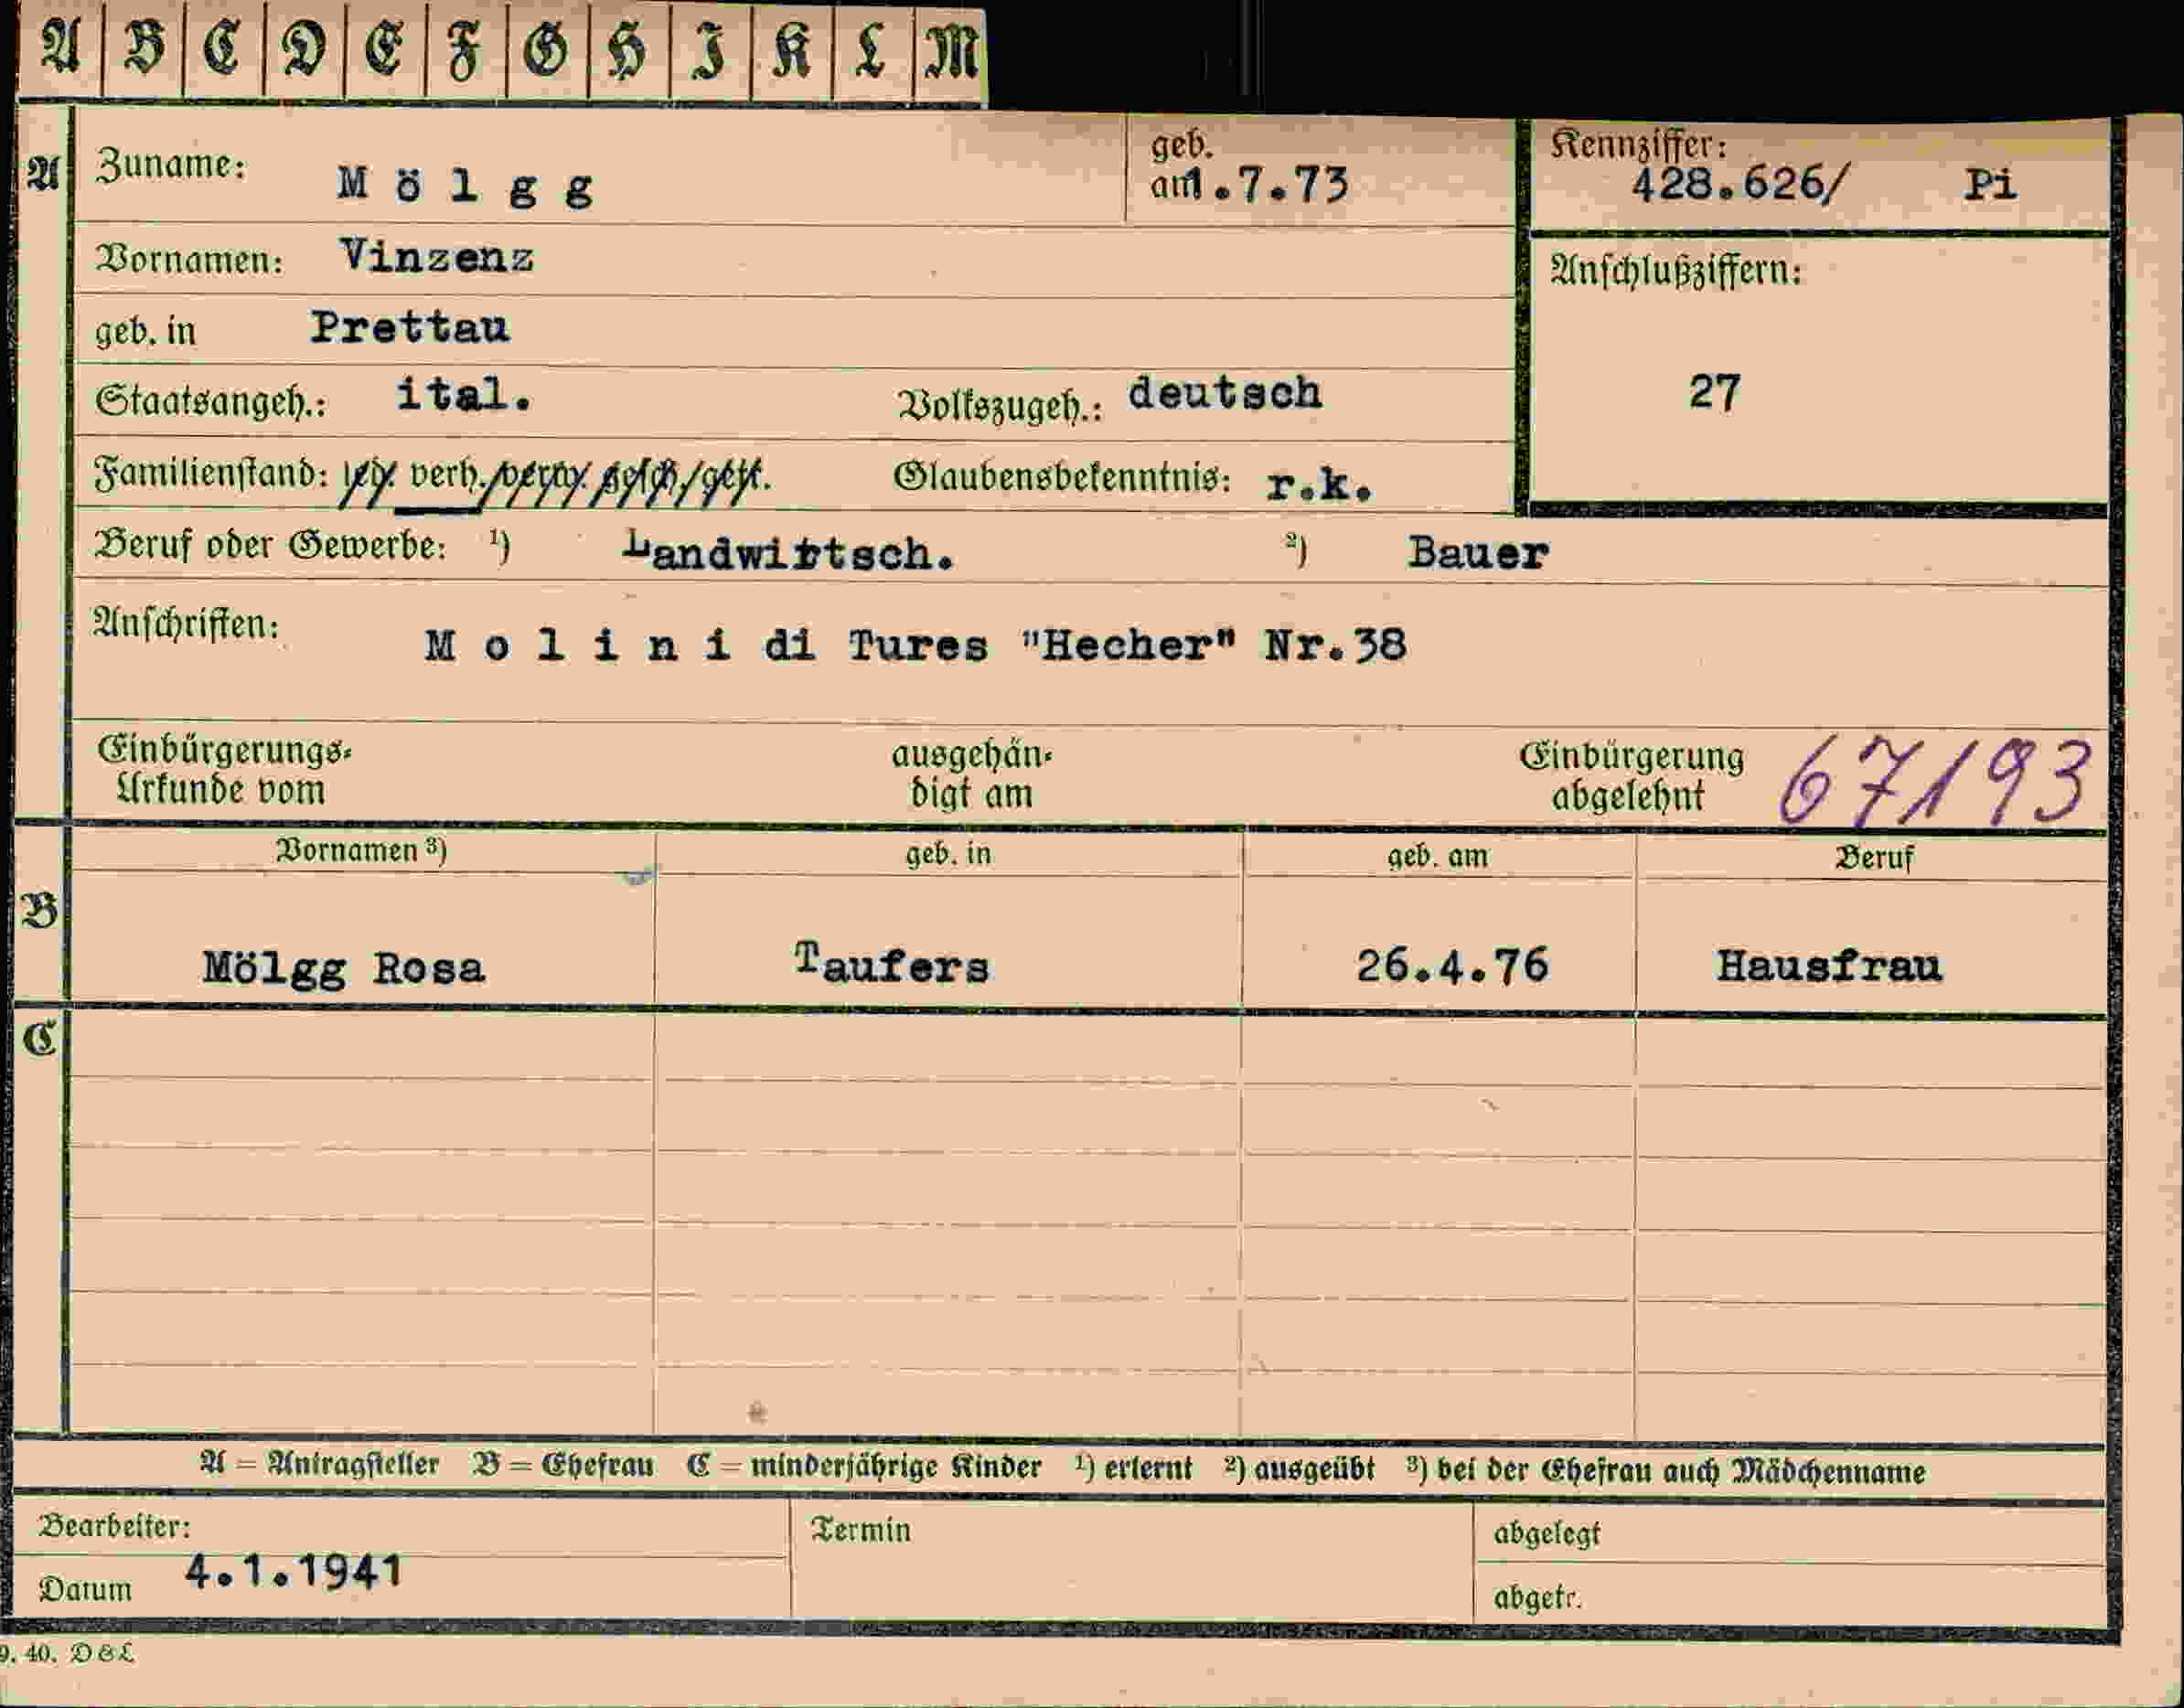 A B C D E F G H I K L M
A Zuname: Mölgg geb. am 1.7.73 Kennziffer: 428.626/ Pi
Vornamen: Vinzenz Anschlußziffern:
geb. in Prettau
Staatsangeh.: ital. Volkszugeh.: deutsch 27
Familienstand: led. verh./verw. gesch./get. Glaubensbekenntnis: r.k.
Beruf oder Gewerbe: ¹) Landwirtsch. ²) Bauer
Anschriften: Molini di Tures "Hecher" Nr.38
Einbürgerungs- ausgehän- Einbürgerung 67193
Urkunde vom digt am abgelehnt
Vornamen ³) geb. in geb. am Beruf
B Mölgg Rosa Taufers 26.4.76 Hausfrau
C
A = Antragsteller B = Ehefrau C = minderjährige Kinder ¹) erlernt ²) ausgeübt ³) bei der Ehefrau auch Mädchenname
Bearbeiter: Termin abgelegt
Datum 4.1.1941 abgetr.
9. 40. D & L